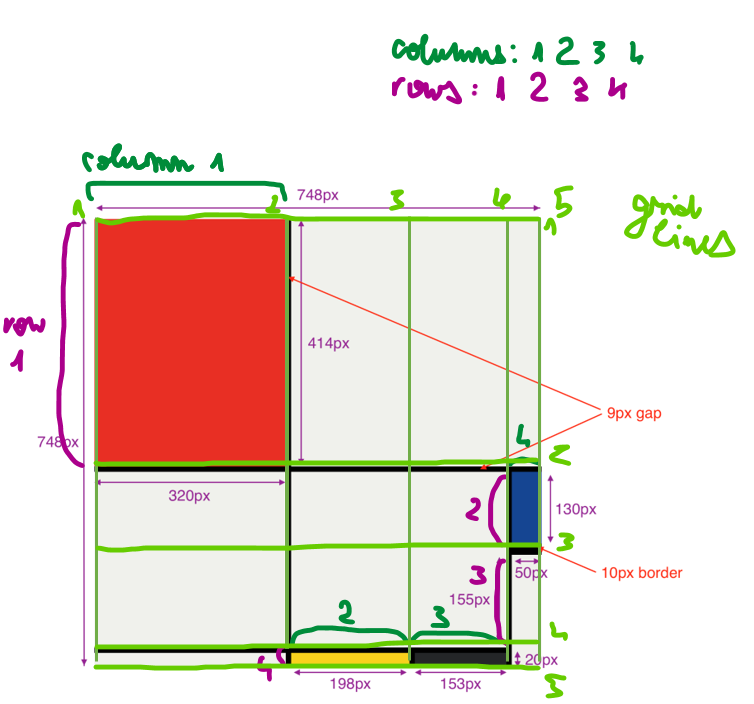 columns: 1 2 3 4
rows: 1 2 3 4
column 1
748px
1 2 3 4 5
grid
lines
1
row
1
414px
9px gap
748px
4
2
320px
2
130px
3
3
50px
10px border
155px
2 3
4
4
20px
5
198px
153px